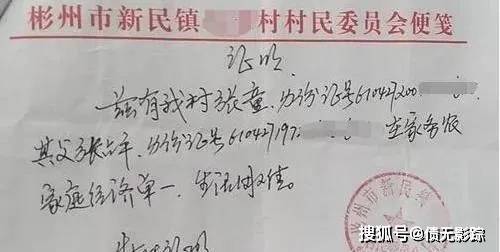 彬州市新民镇 村村民委员会便笺
证明
兹有我村张童，身份证号610427200
其父张占平，身份证号610427197 在家务农
家庭经济单一，生活困难。
特此证明
彬州市新民镇
搜狐号@债无影踪